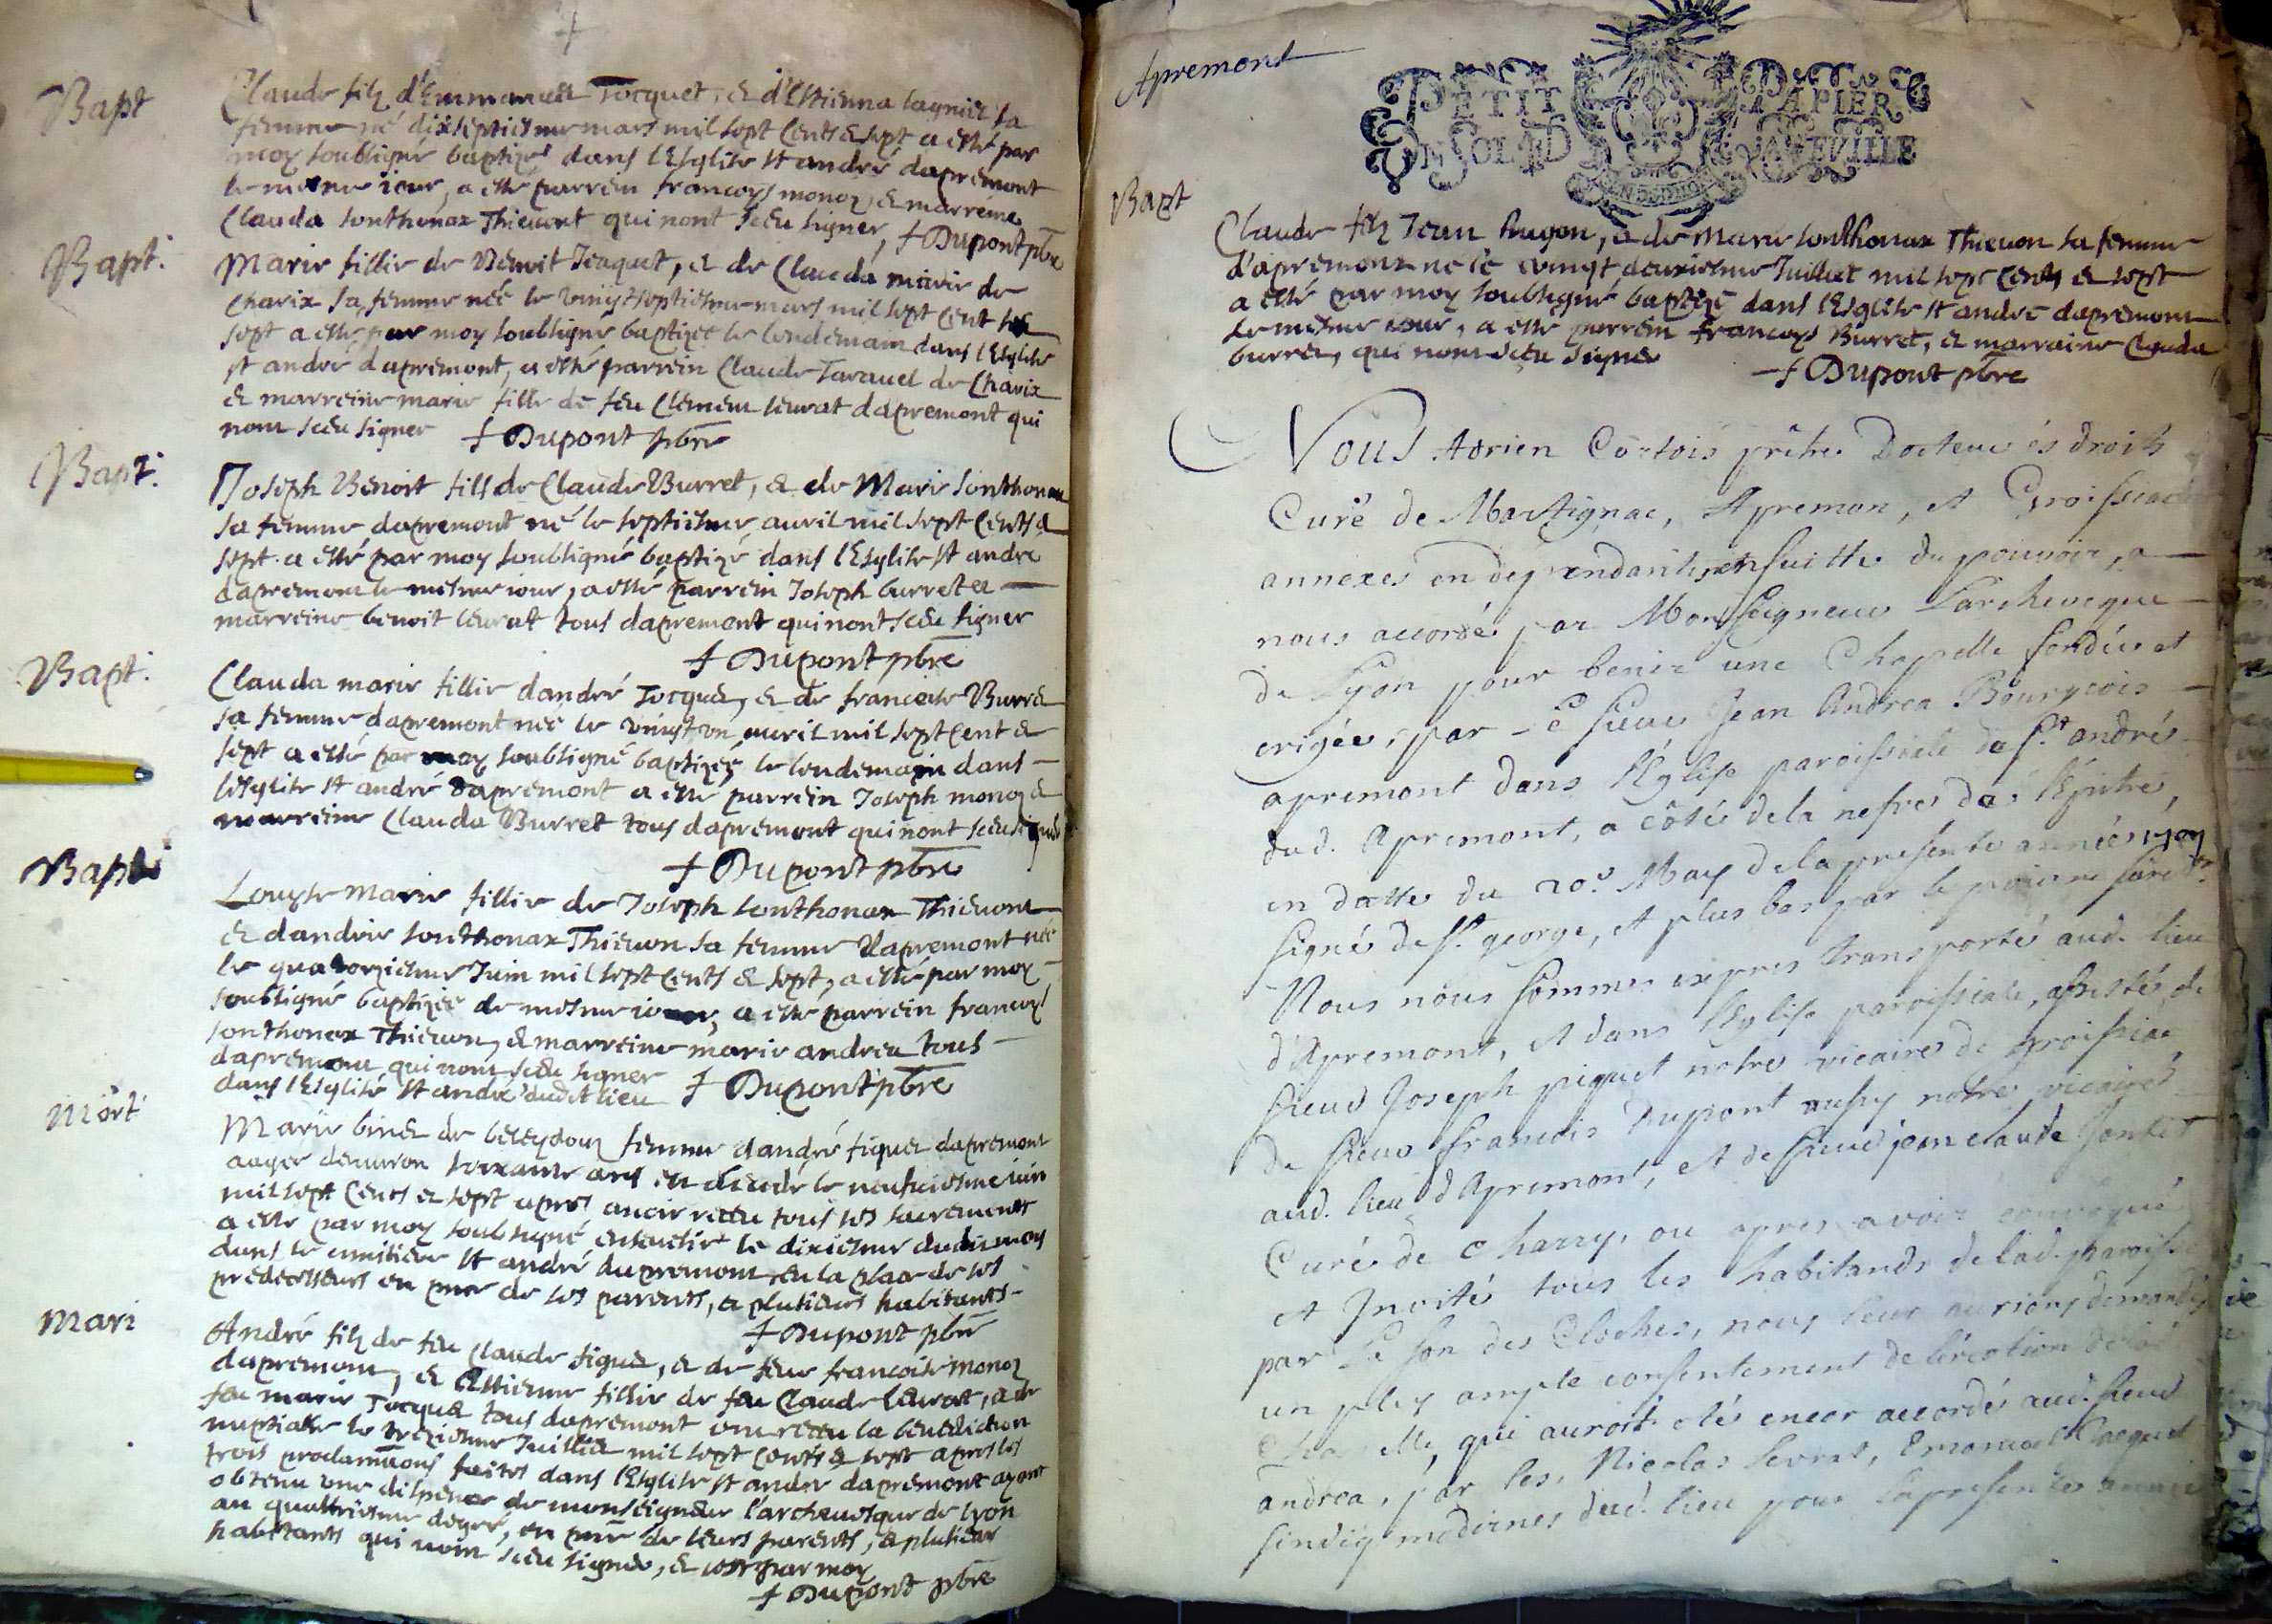 Bapt
Claude filz d'Emmanuel Jocquet, & d'Estienna lagnier sa
femme né dixseptiesme mars mil sept Cents & sept a esté par
moy soubsigné baptizé dans l'Esglise st andré dapremont
le mesme iour, a esté parrein francoys monoz, & marreine
Clauda sonthonax Thieuent qui nont sceu signer, f Dupont pbre
Bapt.
Marie fillie de Benoit Jeaquet, & de Clauda marie de
Charix sa femme née le vingtseptiesme mars mil sept Cent
sept a esté par moy soubsigné baptizée le lendemain dans l'Esglise
st andré dapremont, a esté parrein Claude Tarauel de Charix
& marreine marie fille de feu Clement leurat dapremont qui
nont sceu signer f Dupont pbre
Bapt.
Joseph Benoit fils de Claude Burret, & de Marie sonthonax
sa femme dapremont né le septiesme auril mil sept Cents &
sept a esté par moy soubsigné baptizé dans l'Esglise st andre
dapremont le mesme iour, a esté parrein Joseph burret &
marreine benoit leurat tous dapremont qui nont sceu signer
f Dupont pbre
Bapt.
Clauda marie fillie dandré Jocquet, & de francoise Burret
sa femme dapremont née le vingt un auril mil sept Cent &
sept a esté par moy soubsigné baptizée le lendemain dans
lesglise st andré dapremont a esté parrein Joseph monoz &
marreine Clauda Burret tous dapremont qui nont sceu signer
f Dupont pbre
Bapt
Louyse marie fillie de Joseph sonthonax Thieuent
& dandrie sonthonax Thieuon sa femme dapremont née
le quatorziesme Juin mil sept Cents & sept, a esté par moy
soubsigné baptizée le mesme iour, a esté parrein francoys
sonthonax Thieuon, & marreine marie andrea tous
dapremont, qui nont sceu signer
dans l'Esglise st andré dudit lieu f Dupont pbre
Mort
Marie binet de beleydoux femme dandré figuet dapremont
agee denuiron soixante ans est decedé le neufuiesme iuin
mil sept Cents & sept apres auoir receu tous les sacrements
a esté par moy soubsigné enseuelie le dixiesme dudit moys
dans le cemitiere st andré dapremont en la place de ses
predecesseurs en pnce de ses parents, & plusieurs habitants
f Dupont pbre
Mari
André filz de feu Claude figuet, & de feue francoise Monoz
dapremont, & Estienne fillie de feu Claude leurat, & de
feu marie Jocquet tous dapremont ont receu la benediction
nuptialle le treziesme Juillet mil sept Cents & sept apres les
trois proclamations faites dans l'Esglise st andre dapremont ayant
obtenu une dispence de monseigneur l'archeuesque de lyon
au quattriesme degré, en pnce de leurs parents, & plusieurs
habitants qui nont sceu signer, & par moy
f Dupont pbre
Apremont
PETIT PAPIER
UN SOL 4 D LA FEUILLE
Bapt
Claude filz Jean hugon, & de Marie sonthonax Thieuon sa femme
d'apremont né le vingt deuxiesme Juillet mil sept Cents & sept
a esté par moy soubsigné baptizé dans l'Esglise st andré dapremont
le mesme iour, a esté parrein francoys Burret, & marraine Clauda
burret, qui nont sceu signer
f Dupont pbre
Nous Adrien Cortois prêtre Docteur és droits
Curé de Martignac, Apremon, et Groissiac
annexes en dépendantes, ensuitte du pouvoir, a
nous accordé par Monseigneur Larcheveque
de Lyon pour benir une Chapelle fondée et
erigée, par Le sieur Jean Andrea Bourgeois
apremont dans l'Eglise paroissiale de St. andré
dud. Apremont, a côté de la nef
en datte du 20e. May de la presente année 1707
signé de St. george, et plus bas par
Nous nous sommes expres transporté aud. lieu
d'Apremont, et dans l'Eglise paroissiale, assisté de
sieur Joseph piquet notre vicaire de groissiac
de sieur francois Dupont aussy notre vicaire
aud. lieu d'Apremont, et de sieur jean claude
Curé de Charry, ou apres avoir convoqué
et Invité tous les habitands de lad. paroisse
par Le son des Cloches, nous leur aurions demandé
un plus ample consentement de lérection de la
Chapelle, qui auroit eté encor accordé aud. sieur
andrea, par les, Nicolas Levrat, Emanuel Jacquet
sindiq modernes dud. lieu pour la presente année